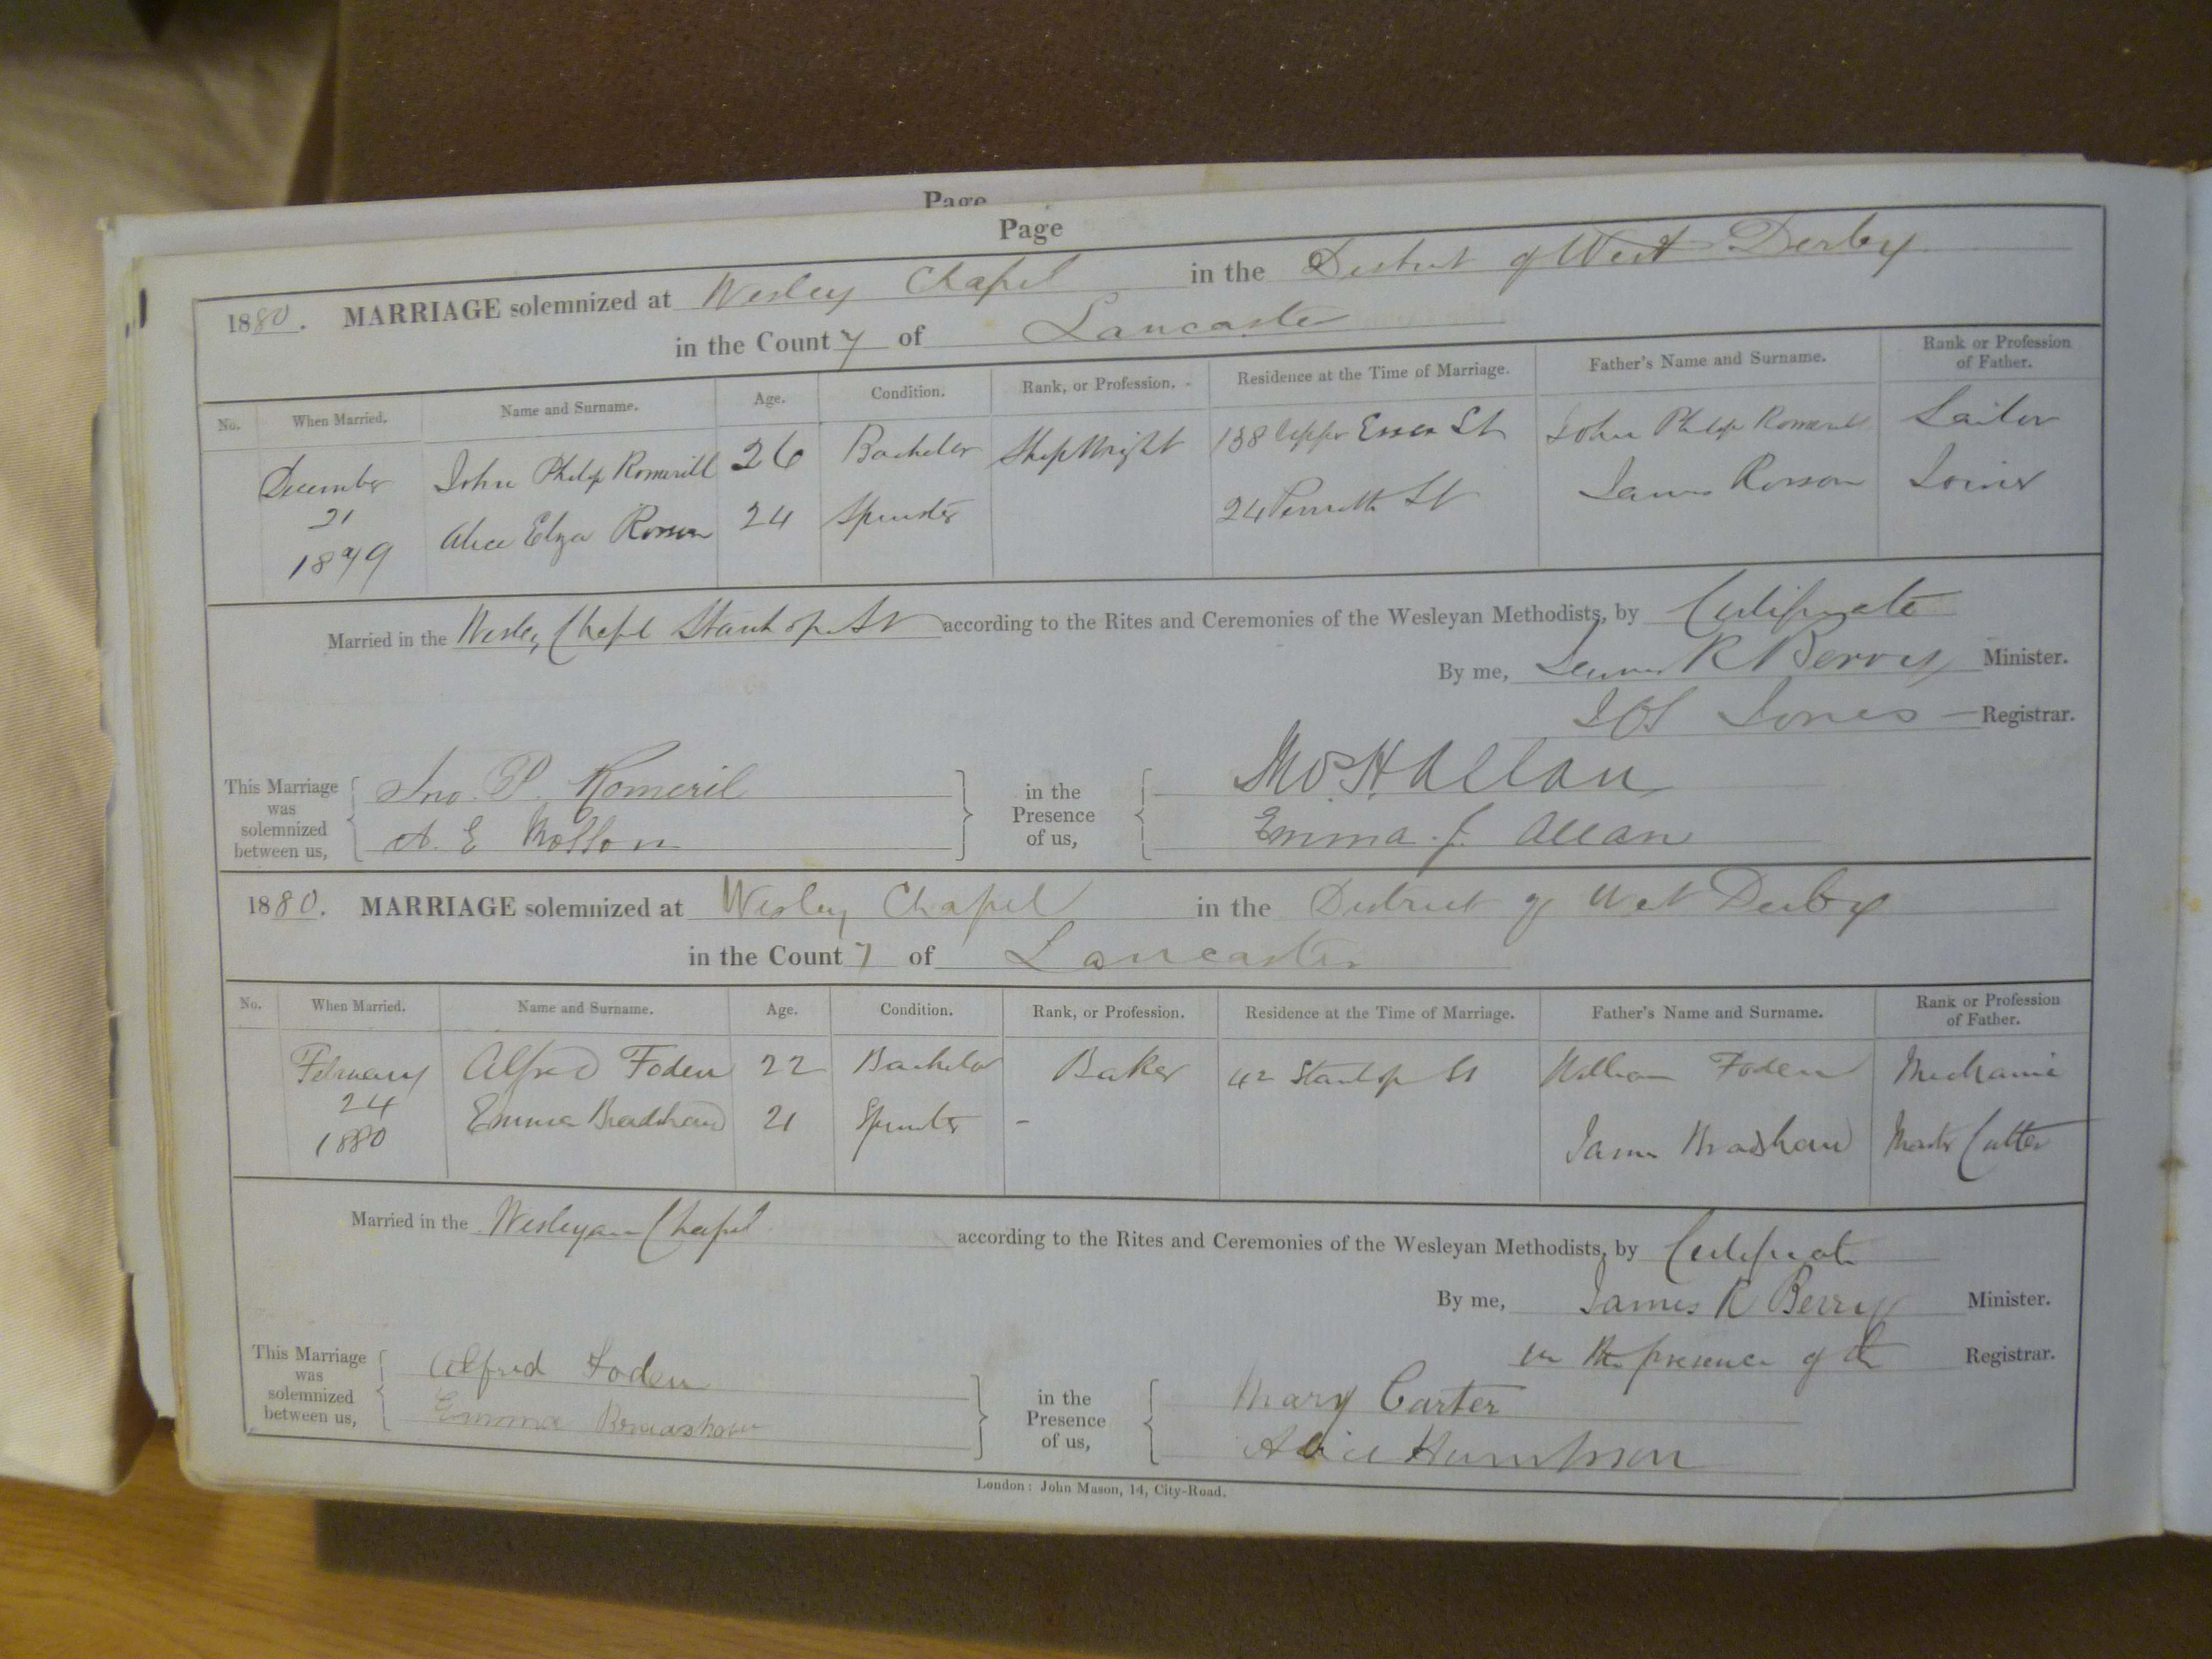 Page
Page
1880. MARRIAGE solemnized at Wesley Chapel in the District of West Derby
in the County of Lancaster
No. When Married. Name and Surname. Age. Condition. Rank, or Profession. Residence at the Time of Marriage. Father's Name and Surname. Rank or Profession of Father.
December John Philip Romerill 26 Bachelor ShipWright 138 Upper Essex St John Philip Romerill Sailor
21 Alice Eliza 24 Spinster 24 St James Joiner
1879
Married in the Wesley Chapel Stanhope St according to the Rites and Ceremonies of the Wesleyan Methodists, by Certificate
By me, James R Berry Minister.
Jones Registrar.
This Marriage was solemnized between us, Jno. P. Romeril in the Presence of us, Allan
A. E Emma J. Allan
1880. MARRIAGE solemnized at Wesley Chapel in the District of West Derby
in the County of Lancaster
No. When Married. Name and Surname. Age. Condition. Rank, or Profession. Residence at the Time of Marriage. Father's Name and Surname. Rank or Profession of Father.
February Alfred Foden 22 Bachelor Baker 42 Stanhope St William Foden Mechanic
24 Emma Bradshaw 21 Spinster - James Bradshaw Master Cutter
1880
Married in the Wesleyan Chapel according to the Rites and Ceremonies of the Wesleyan Methodists, by Certificate
By me, James R Berry Minister.
in the presence of the Registrar.
This Marriage was solemnized between us, Alfred Foden in the Presence of us, Mary Carter
Emma Bradshaw Alice
London: John Mason, 14, City-Road.